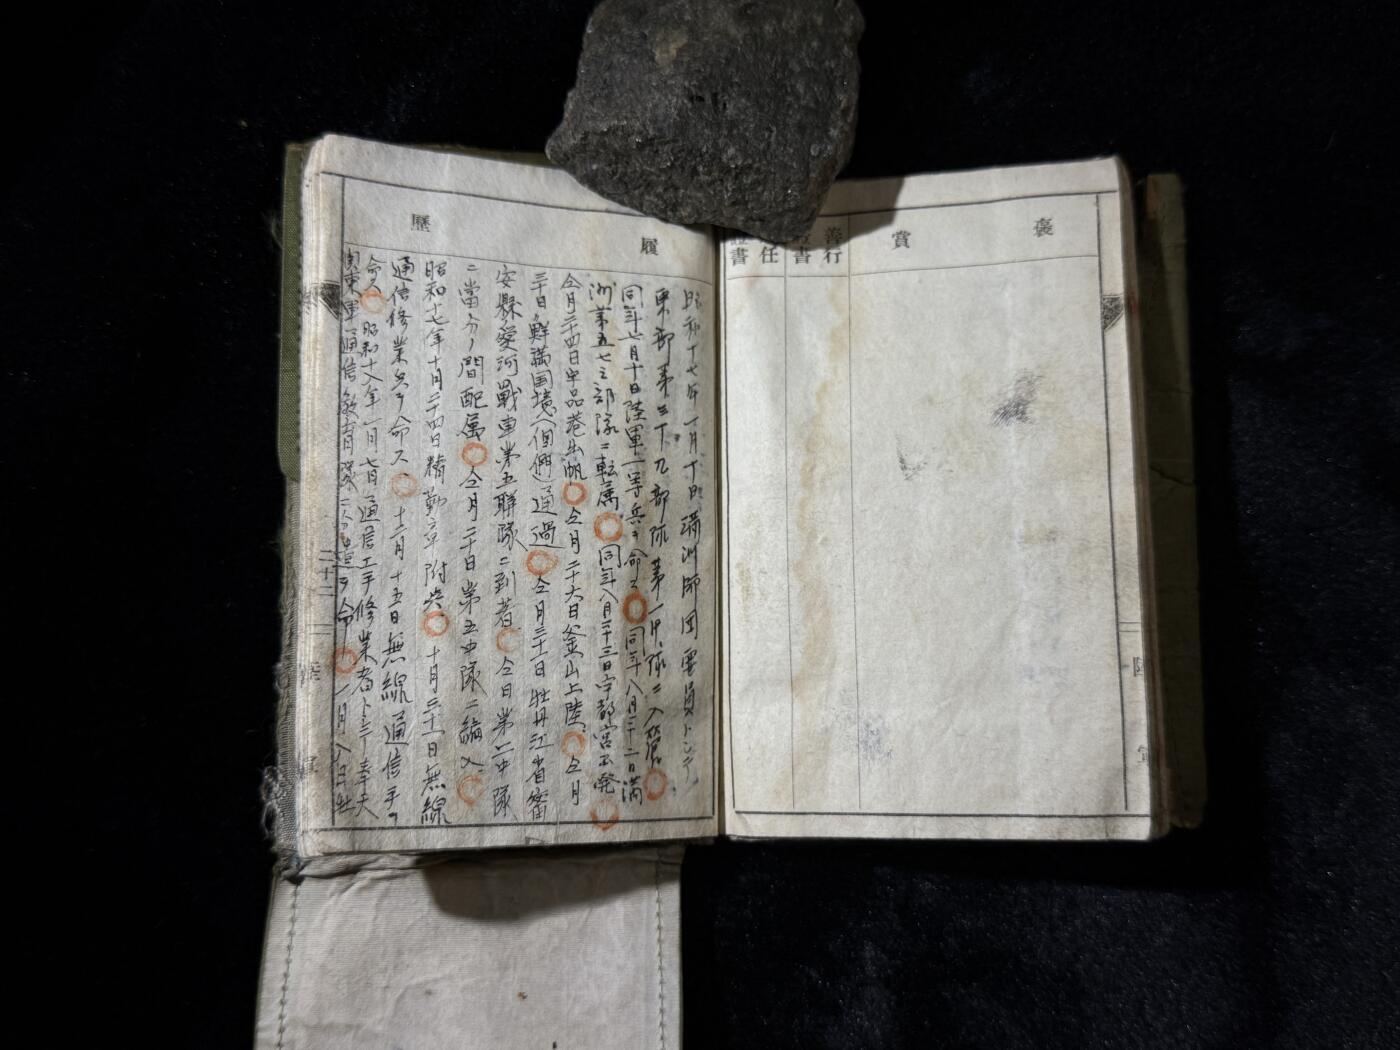 褒賞
善行
書
任
書
履歴
昭和十七年一月十日満洲師団要員トシテ
東部第三十九部隊第一中隊ニ入營
同年七月十日陸軍一等兵ヲ命ス 同年八月二十二日満
洲第五七三部隊ニ転属 同年八月二十三日宇都宮出発
仝月二十四日 品港出帆 仝月二十六日釜山上陸 仝月
三十日鮮満国境 通過 仝月三十一日牡丹江省寗
安縣愛河戦車第五聯隊ニ到着 仝日第二中隊
ニ當分ノ間配属 仝月二十日第五中隊ニ編入
昭和十七年十月二十四日精勤章附典 十月三十一日無線
通信修業兵ヲ命ス 十二月十五日無線通信手ヲ
命ス 昭和十八年一月七日通信工手修業者トシテ奉天
関東軍通信教育隊ニ分遣ヲ命ス 一月八日牡
二十二